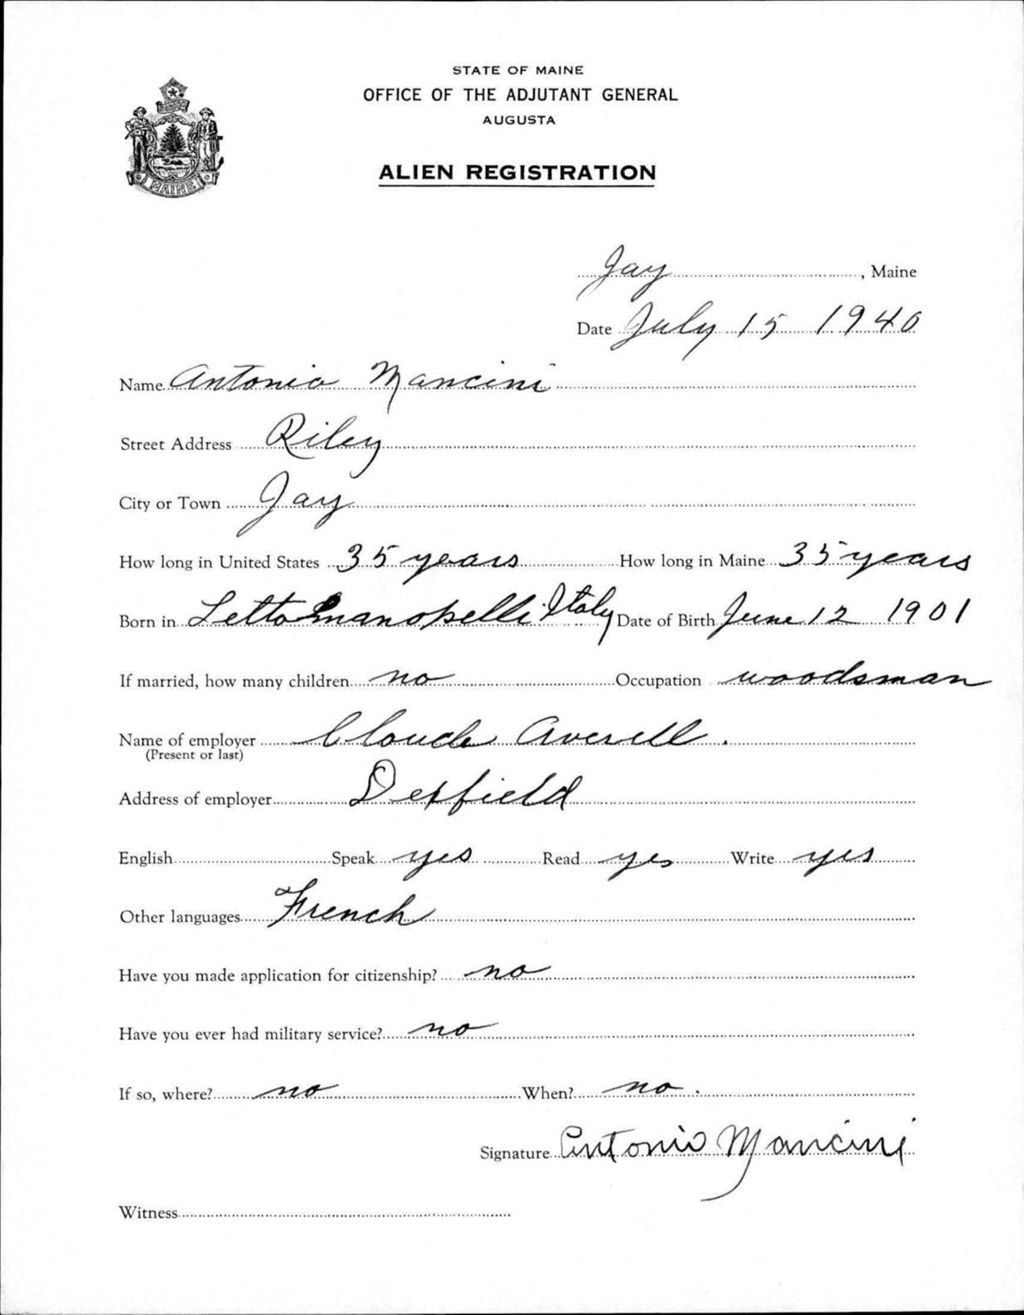 STATE OF MAINE
OFFICE OF THE ADJUTANT GENERAL
AUGUSTA
ALIEN REGISTRATION
MAINE
Jay, Maine
Date July 15 1940
Name Antonio Mancini
Street Address Riley
City or Town Jay
How long in United States 35 years How long in Maine 35 years
Born in Lettomanopelli Italy Date of Birth June 12 1901
If married, how many children no Occupation woodsman
Name of employer Claude Averill.
(Present or last)
Address of employer Dexfield
English Speak yes Read yes Write yes
Other languages French
Have you made application for citizenship? no
Have you ever had military service? no
If so, where? no When? no.
Signature Antonio Mancini
Witness